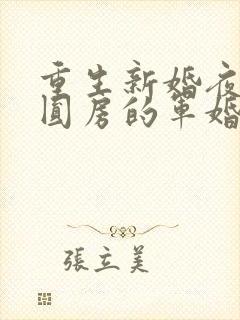 重生新婚夜
圓房的軍婚
張立美